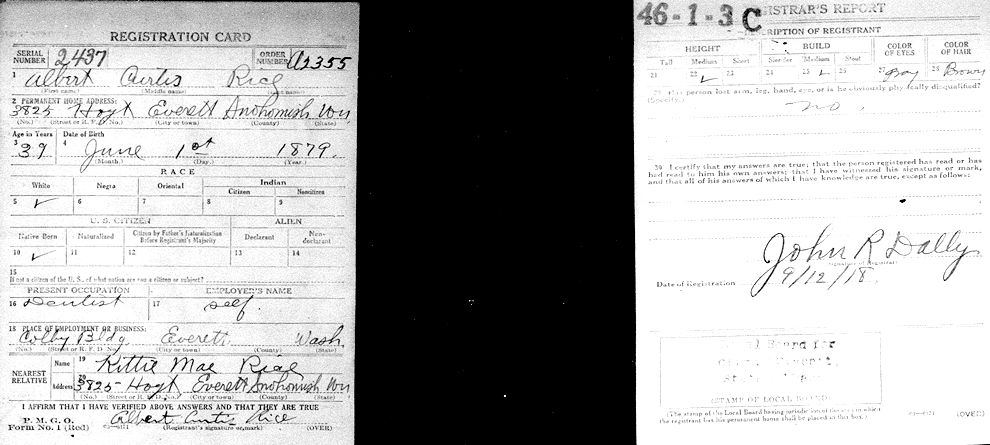 REGISTRATION CARD
SERIAL NUMBER 2437 ORDER NUMBER A2355
1 Albert Curtis Rice
(First name) (Middle name) (Last name)
2 PERMANENT HOME ADDRESS:
3825 Hoyt Everett Snohomish Wn
(No.) (Street or R. F. D. No.) (City or town) (County) (State)
Age in Years Date of Birth
3 39 4 June 1st 1879.
(Month.) (Day.) (Year.)
RACE
White Negro Oriental Indian
Citizen Noncitizen
5 ✓ 6 7 8 9
U. S. CITIZEN ALIEN
Native Born Naturalized Citizen by Father's Naturalization Before Registrant's Majority Declarant Non-declarant
10 ✓ 11 12 13 14
15
If not a citizen of the U. S., of what nation are you a citizen or subject?
PRESENT OCCUPATION EMPLOYER'S NAME
16 Dentist 17 Self.
18 PLACE OF EMPLOYMENT OR BUSINESS:
Colby Bldg Everett Wash.
(No.) (Street or R. F. D. No.) (City or town) (County) (State)
NEAREST RELATIVE Name 19 Kittie Mae Rice
Address 20 3825 Hoyt Everett Snohomish Wn
(No.) (Street or R. F. D. No.) (City or town) (County) (State)
I AFFIRM THAT I HAVE VERIFIED ABOVE ANSWERS AND THAT THEY ARE TRUE
P. M. G. O.
Form No. 1 (Red) Albert Curtis Rice
(Registrant's signature or mark) (OVER)
46-1-3 C REGISTRAR'S REPORT
DESCRIPTION OF REGISTRANT
HEIGHT BUILD COLOR OF EYES COLOR OF HAIR
Tall Medium Short Slender Medium Stout
21 22 ✓ 23 24 25 ✓ 26 27 Gray 28 Brown
29 Has person lost arm, leg, hand, eye, or is he obviously physically disqualified?
(Specify.) no.
30 I certify that my answers are true; that the person registered has read or has
had read to him his own answers; that I have witnessed his signature or mark,
and that all of his answers of which I have knowledge are true, except as follows:
John R Dally
(Signature of Registrar)
Date of Registration 9/12/18.
Local Board for
(STAMP OF LOCAL BOARD)
(The stamp of the Local Board having jurisdiction of the area in which
the registrant has his permanent home shall be placed in this box.) (OVER)